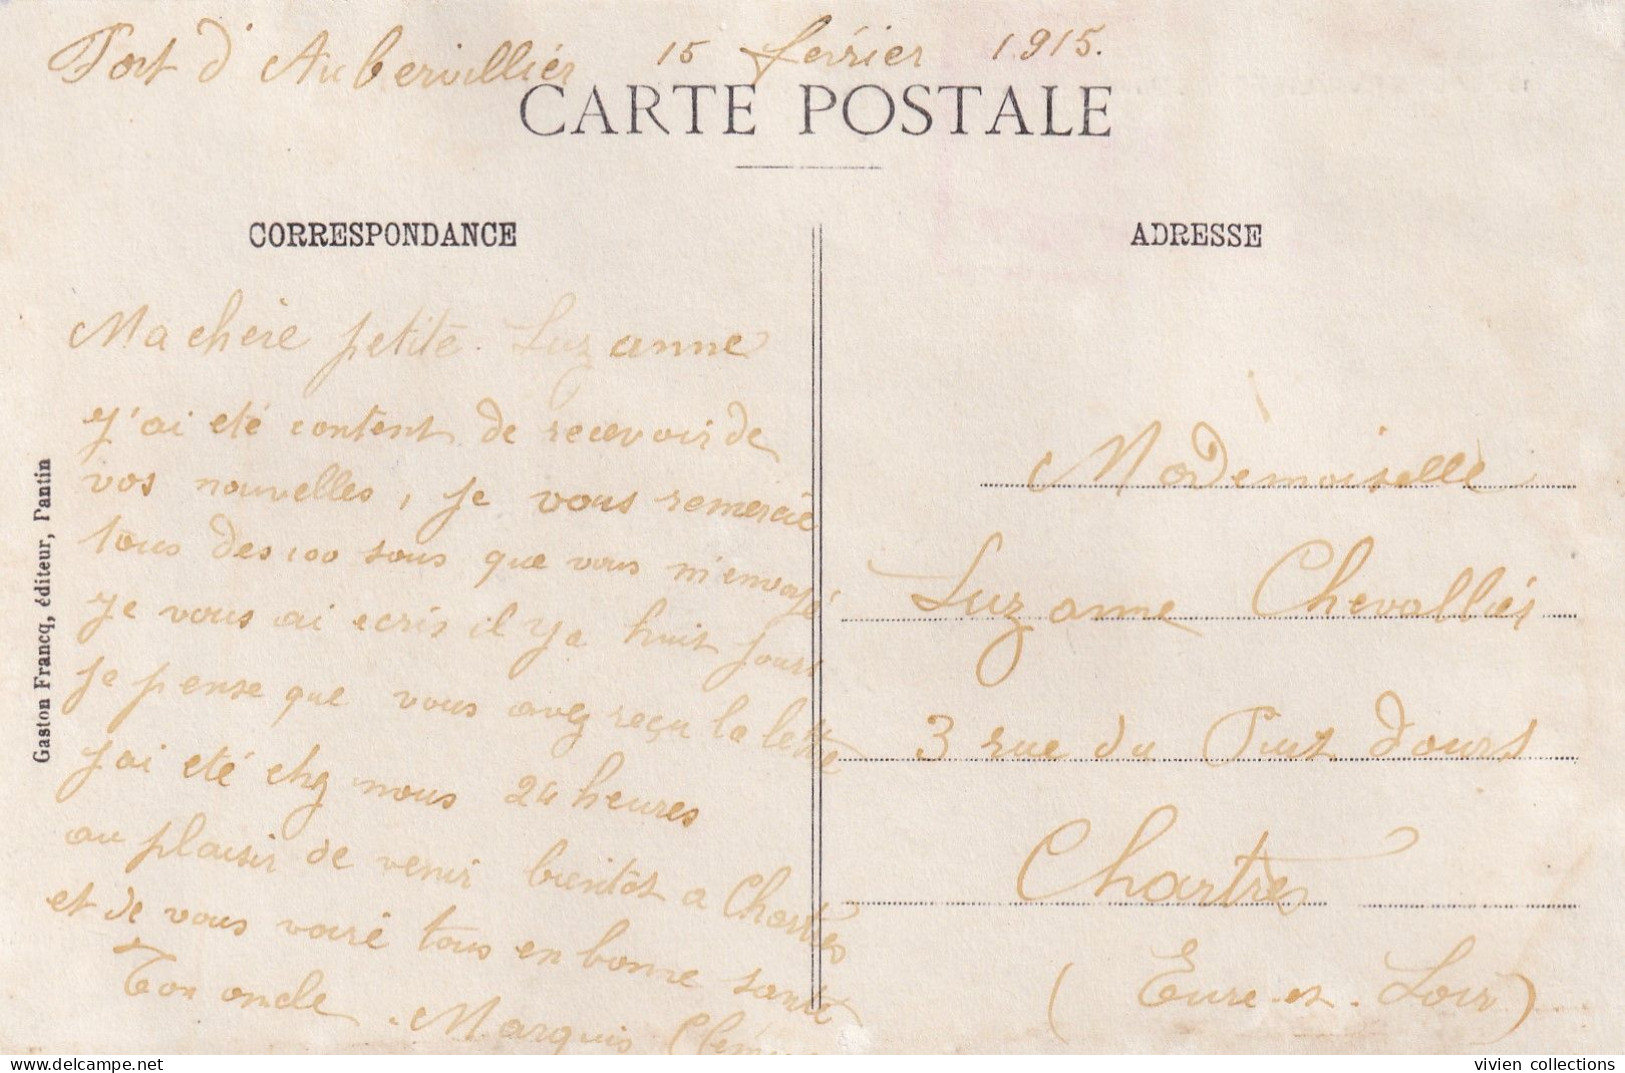 Fort d'Aubervillier 15 février 1915.
CARTE POSTALE
CORRESPONDANCE
Ma chère petite Suzanne
j'ai eté content de recevoir de
vos nouvelles, je vous remercie
tous des 100 sous que vous m'envoyé
je vous ai ecris il y a huit jours
je pense que vous avez reçu la lettre
j'ai eté chez nous 24 heures
au plaisir de venir bientôt a Chartres
et de vous voiré tous en bonne santé
Ton oncle Marquis
Gaston Francq, éditeur, Pantin
ADRESSE
Mademoiselle
Suzanne Chevalliér
3 rue du Puit Dours
Chartres
(Eure-et-Loir)
vivien collections